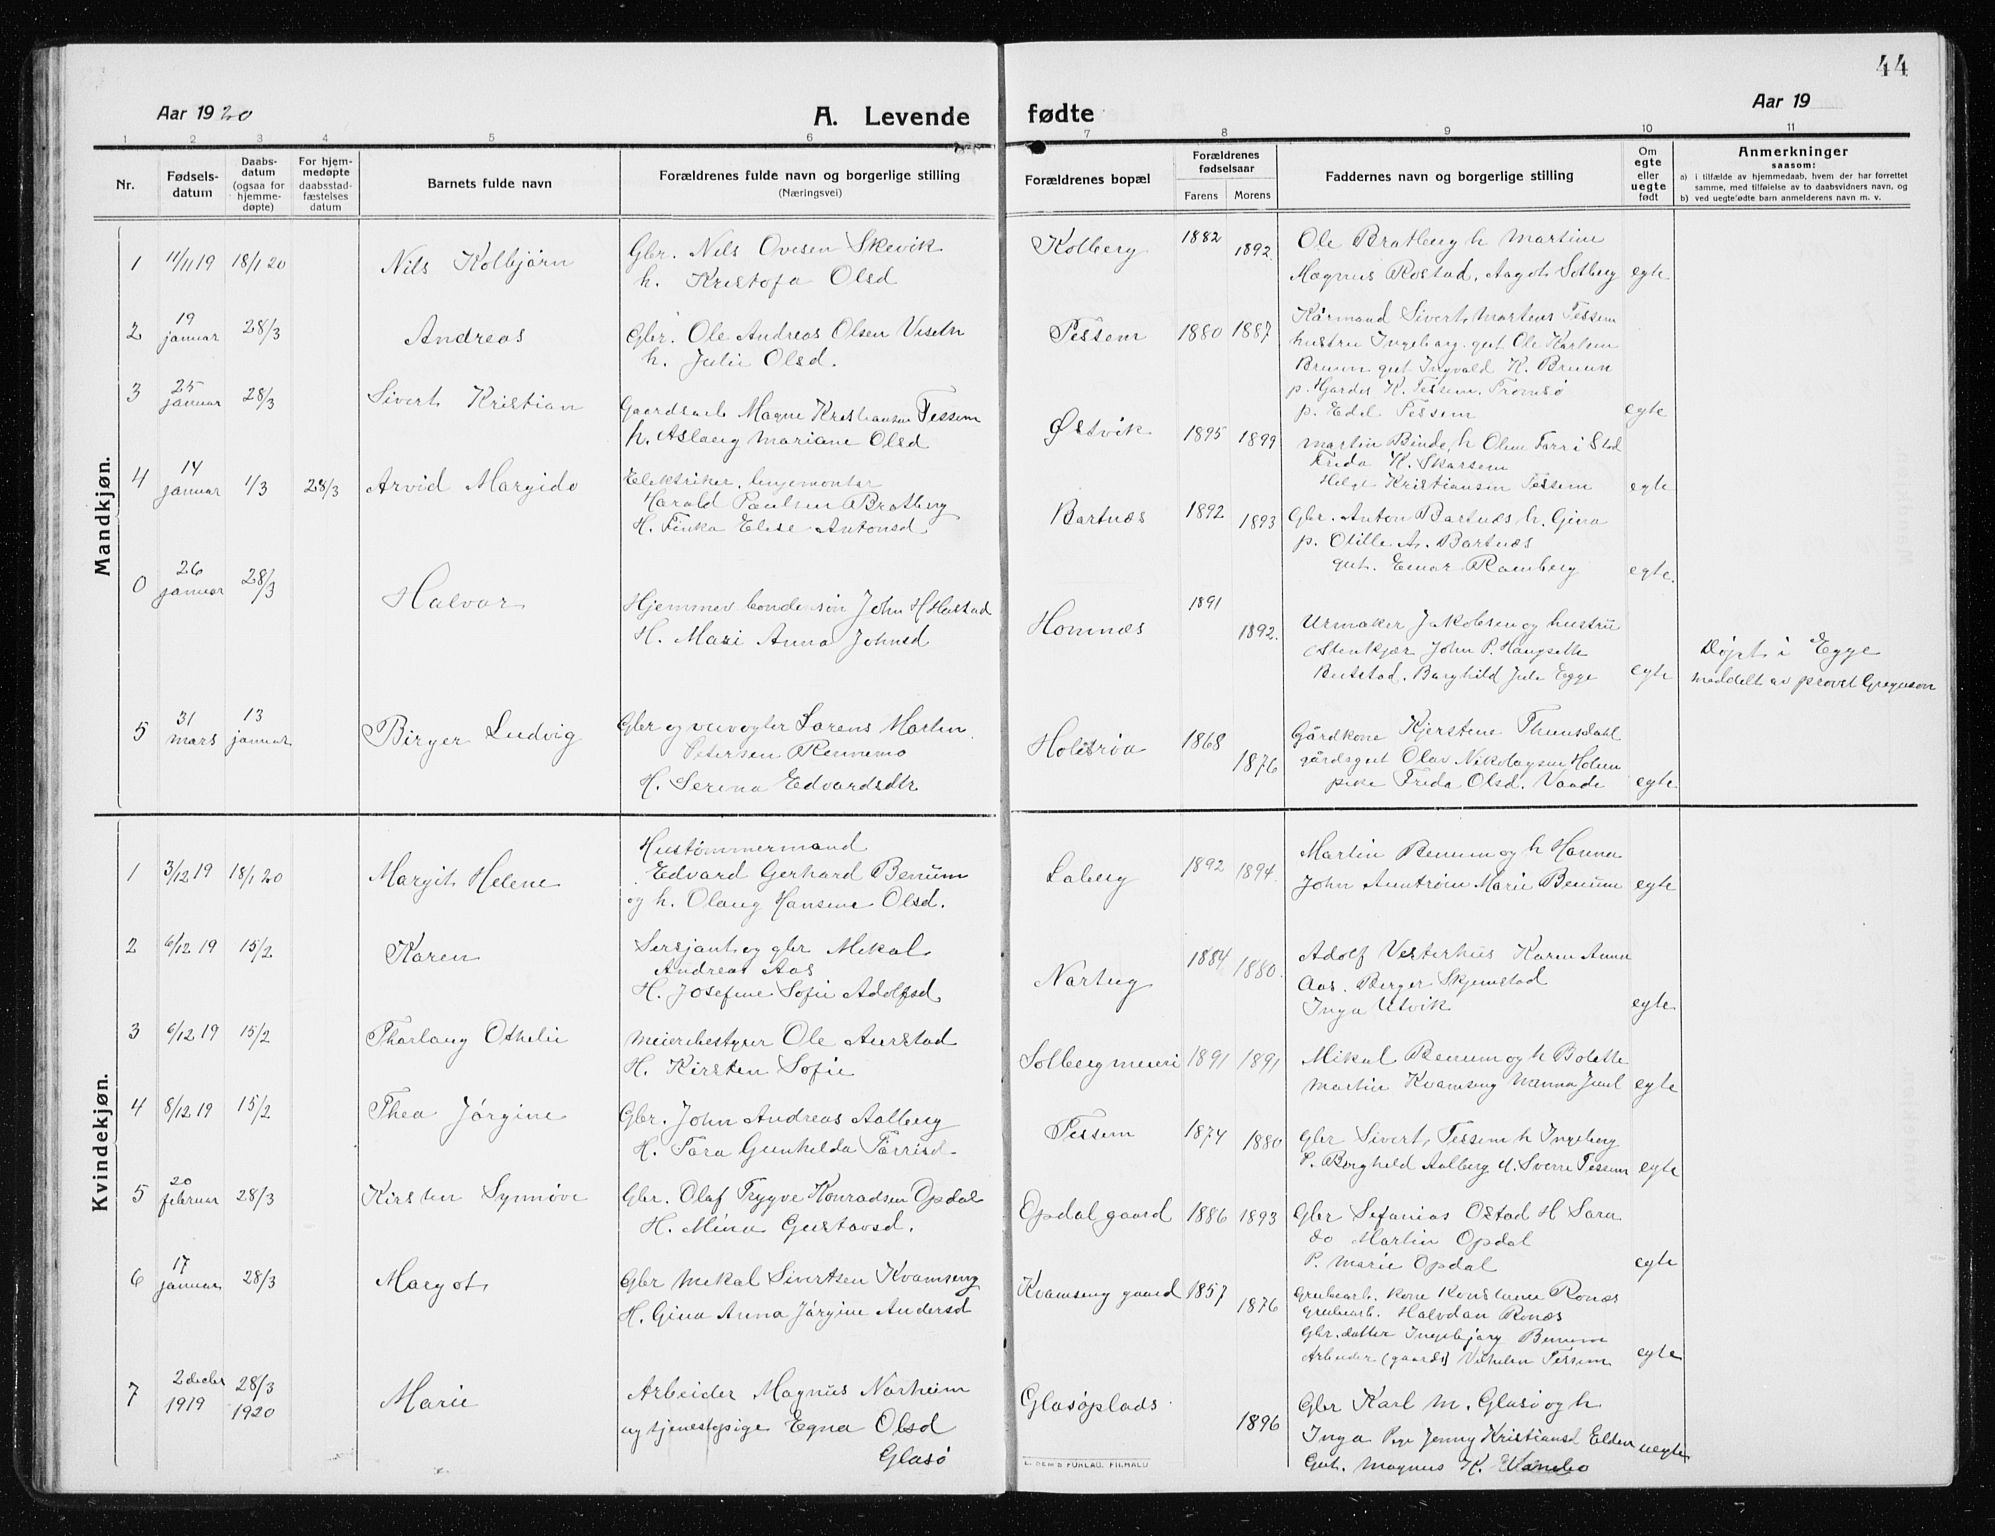 44
Aar 1920
A. Levende fødte
Aar 19
1 2 3 4 5 6 7 8 9 10 11
Nr.
Fødsels-
datum
Daabs-
datum
(ogsaa for
hjemme-
døpte)
For hjem-
medøpte
daabsstad-
fæstelses
datum
Barnets fulde navn
Forældrenes fulde navn og borgerlige stilling
(Næringsvei)
Forældrenes bopæl
Forældrenes
fødselsaar
Farens Morens
Faddernes navn og borgerlige stilling
Om
egte
eller
uegte
født
Anmerkninger
saasom:
a) i tilfælde av hjemmedaab, hvem der har forrettet
samme, med tilføielse av to daabsvidners navn, og
b) ved uegtefødte barn anmelderens navn m. v.
Mandkjøn.
1 11/11 19 18/1 20 Nils Kolbjørn
Gbr. Nils Ovesen Skevik
h. Kristofa Olsd
Kolberg 1882 1892.
Ole Bratberg h Martine
Magnus Rostad. Aagot Solberg egte
2 19 januar 28/3 Andreas
Gbr. Ole Andreas Olsen Viseth
h. Julie Olsd.
Tessem 1880 1887
Kårmand Sivert Martens Tessem
hustru Ingeborg. gut Ole Karlsen
Bruun gut Ingvald K. Bruun
p. Hjørdis K. Tessem. Tromsø
p. Edel Tessem egte
3 25 januar 28/3 Sivert Kristian
Gaardsarb Magne Kristiansen Tessem
h. Aslaug Mariane Olsd
Østvik 1895 1899
Martin Binde, h Oline Farr i Stod
Frida K. Skarsem
Helge Kristiansen Tessem egte
4 14 januar 1/3 28/3 Arvid Margido
Elektriker, linjemontør
Harald Paulsen Bratberg
H. Finka Elise Antonsd
Bartnæs 1892 1893
Gbr. Anton Bartnæs h. Gina
p. Otille A. Bartnæs
gut. Einar Ramberg egte.
0 26 januar 28/3 Halvar
Hjemmev. bondesøn John H Hustad
H. Mari Anna Johnsd
Homnæs 1891 1892.
Urmaker Jakobsen og hustru
Stenkjær John P. Haugseth
Beitstad. Borghild Jule Egge egte
Døpt i Egge
meddelt av provst Gregusson
5 31 mars 13 januar Birger Ludvig
Gbr og veivogter Lorens Martin
Petersen Rennemo
H. Serina Edvardsdtr
Holtrøa 1868 1876
Gårdkone Kjerstine Thunsdahl
gårdsgut Olav Nikolaysen Holm
pike Frida Olsd. Vaade egte
Kvindekjøn.
1 3/12 19 18/1 20 Margit Helene
Hustømmermand
Edvard Gerhard Benum
og h. Olaug Hansine Olsd.
Laberg 1892 1894.
Martin Benum og h Hanna
John Auntrøm Marie Benum egte
2 6/12 19 15/2 Karen
Sersjant og gbr Mikal
Andreas Aas
H. Josefine Sofie Adolfsd
Nortug 1884 1880.
Adolf Vesterhus Karen Anna
Aas. Berger Skjemstad
Inga Utvik egte
3 6/12 19 15/2 Thorlaug Othelie
Meieribestyrer Ole Aurstad
H. Kirsten Sofie
Solberg meieri 1891 1891
Mikal Benum og h Bolette
Martin Kvamseng Nanna Juul egte
4 8/12 19 15/2 Thea Jørgine
Gbr. John Andreas Aalberg
H. Tora Gunhilda Torrisd.
Tessem 1874 1880
Gbr Sivert, Tessem h Ingeborg
P. Borghild Aalberg U. Sverre Tessem egte
5 20 februar 28/3 Kirsten Synnøve
Gbr. Olaf Trygve Konradsen Opdal
H. Mina Gustavsd.
Opdal gaard 1886 1893
Gbr Sefanias Ostad H Sara
do Martin Opdal
P. Marie Opdal egte
6 17 januar 28/3 Margot
Gbr Mikal Sivertsen Kvamseng
H. Gina Anna Jørgine Andersd
Kvamseng gaard 1857 1876
Grubearb. kone Konstanse Ronæs
Grubearb. Halvdan Ronæs
Gbr. datter Ingebjørg Benum
Arbeider (gaards) Vilhelm Tessem egte
7 2 decbr 1919 28/3 1920 Marie
Arbeider Magnus Norheim
og tjenestepige Egna Olsd
Glasø
Glasøplads 1896
Gbr Karl M. Glasø og h
Inga Pige Jenny Kristiansd Elden uegte
Gut. Magnus K. Wandso
E. SEM'S FORLAG. FR.HALD